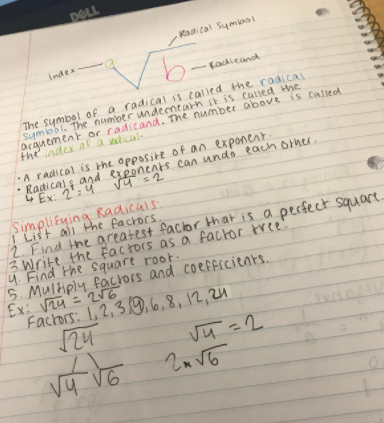 DELL
Radical Symbol
Index
a
b
Radicand
The symbol of a radical is called the radical
symbol. The number underneath it is called the
arguement or radicand. The number above is called
the index of a radical.
• A radical is the opposite of an exponent.
• Radicals and exponents can undo each other.
↳ Ex: 2² = 4 √4 = 2
Simplifying Radicals:
1. List all the factors.
2. Find the greatest factor that is a perfect square.
3. Write the factors as a factor tree.
4. Find the square root.
5. Multiply factors and coefficients.
Ex: √24 = 2√6
Factors: 1, 2, 3, 4, 6, 8, 12, 24
√24
√4 √6
√4 = 2
2 × √6